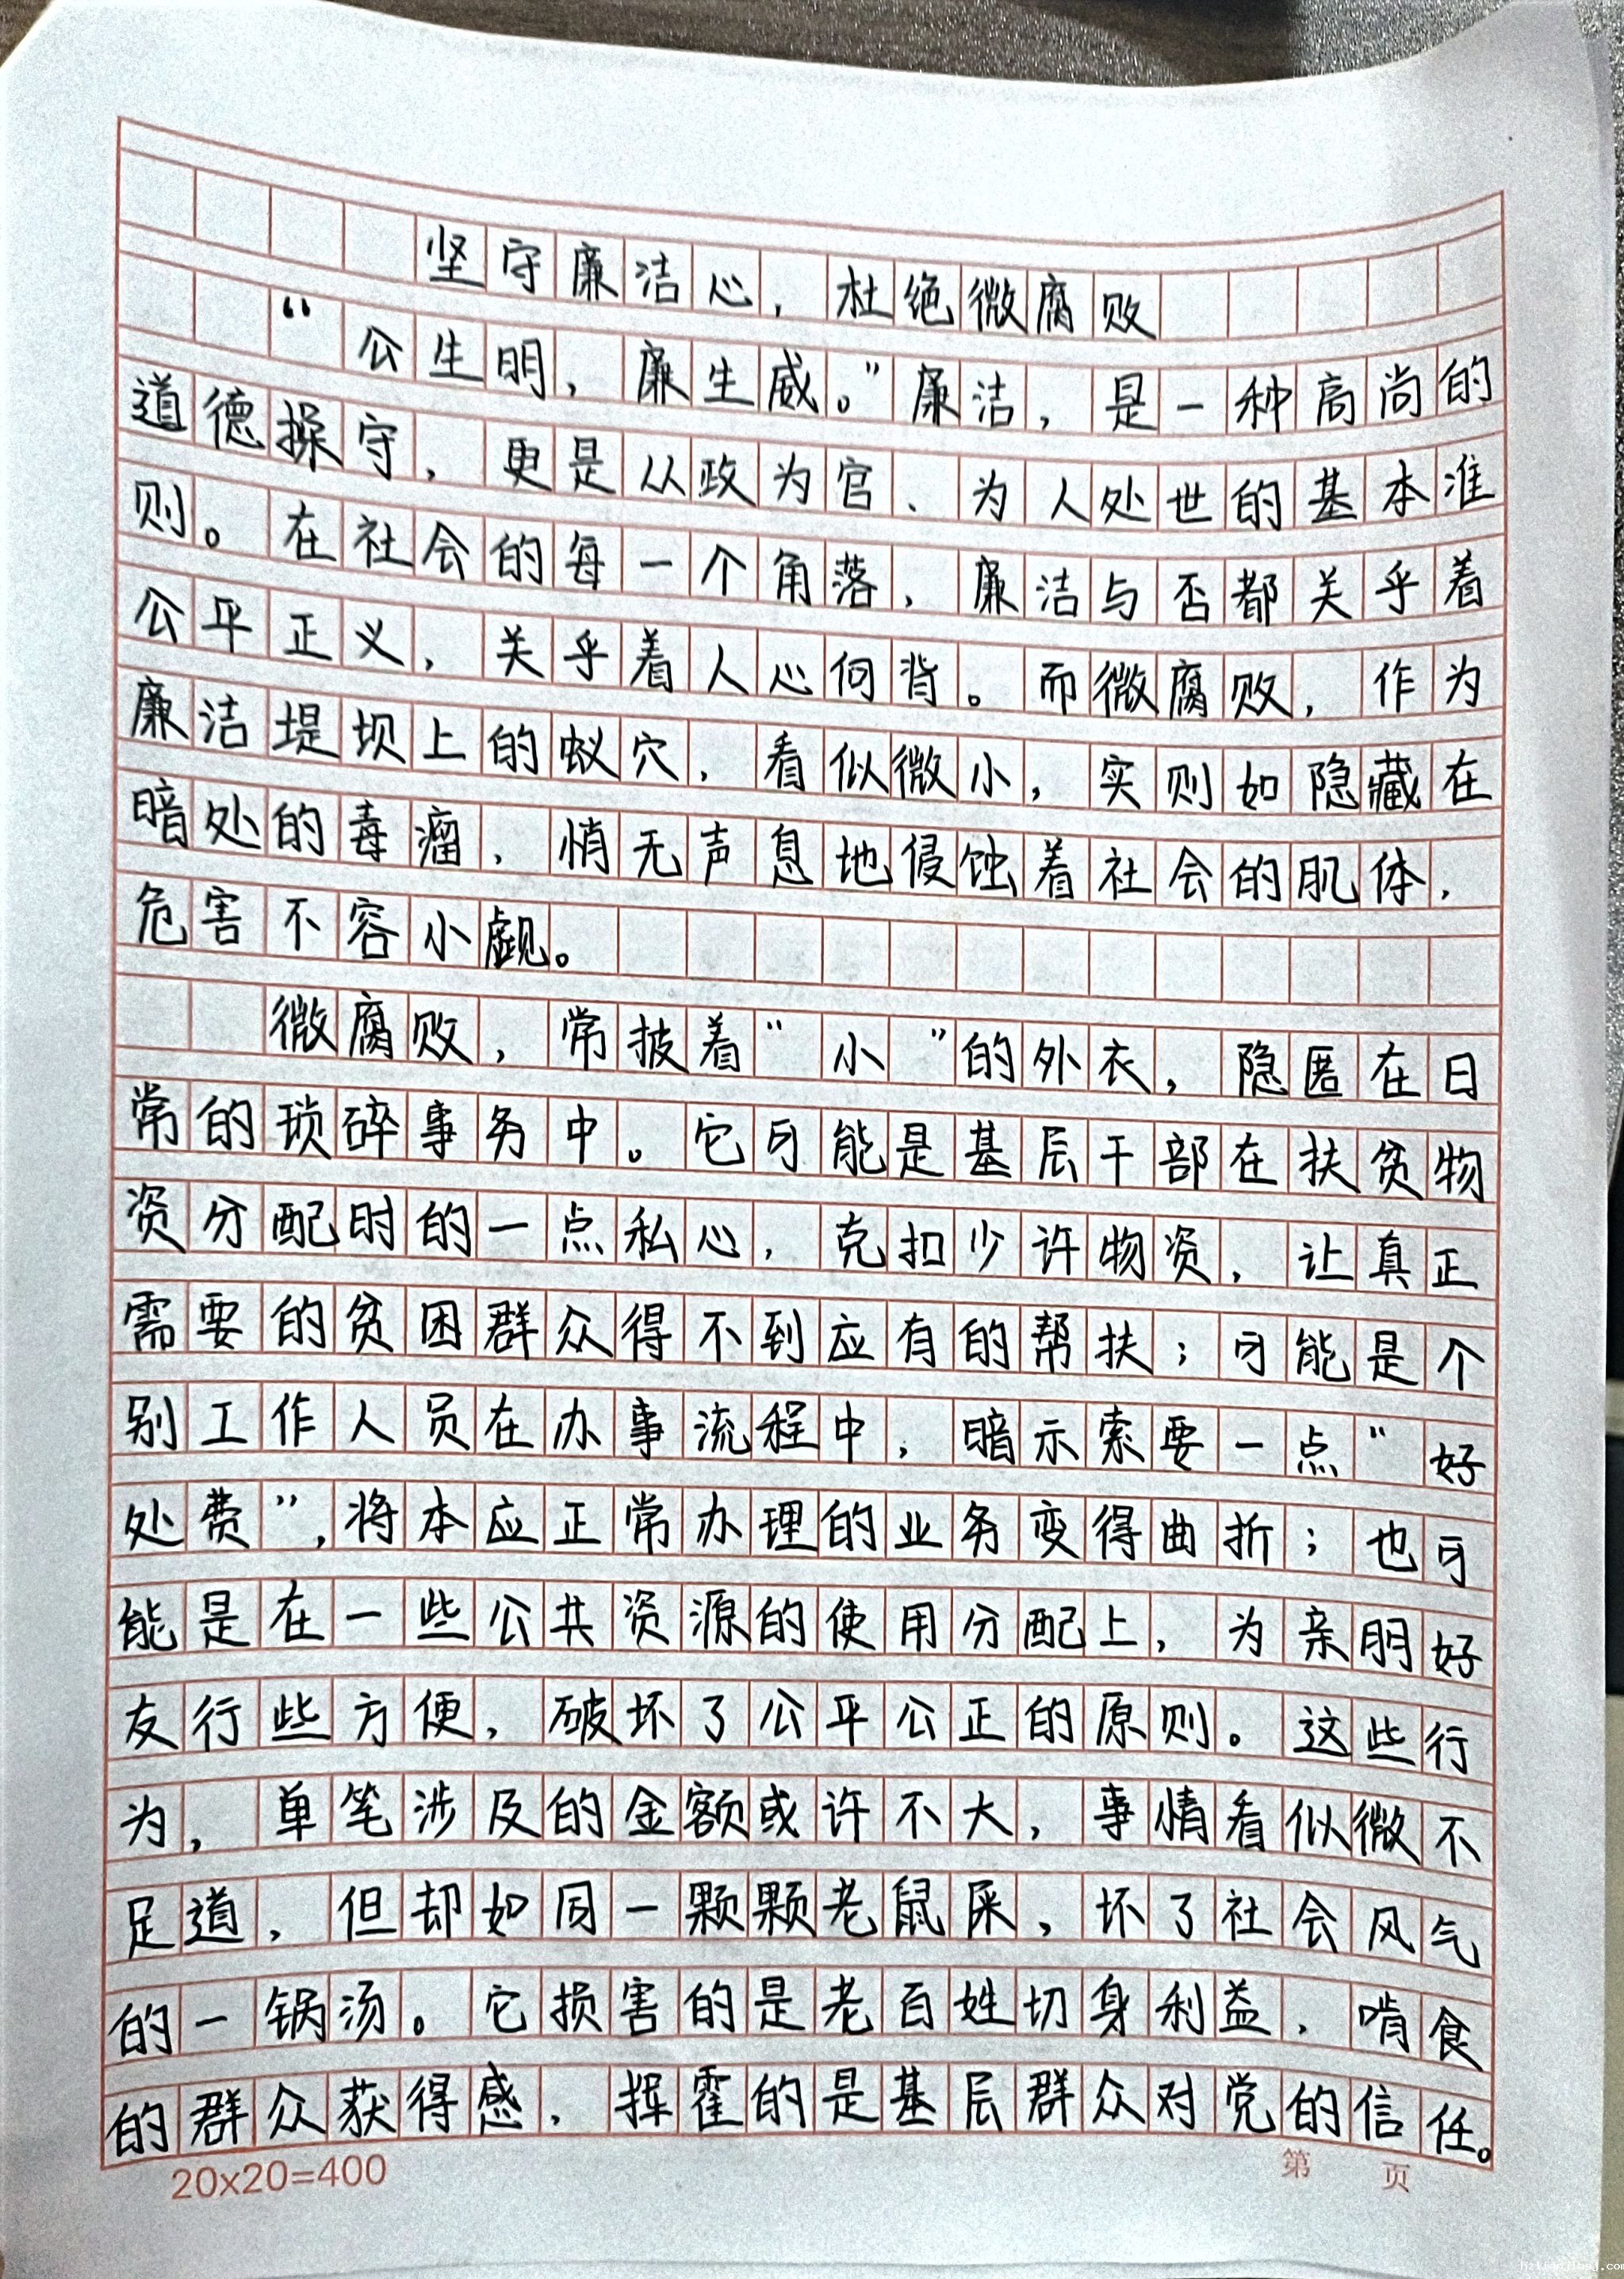 坚守廉洁心，杜绝微腐败
“公生明，廉生威。”廉洁，是一种高尚的
道德操守，更是从政为官、为人处世的基本准
则。在社会的每一个角落，廉洁与否都关乎着
公平正义，关乎着人心向背。而微腐败，作为
廉洁堤坝上的蚁穴，看似微小，实则如隐藏在
暗处的毒瘤，悄无声息地侵蚀着社会的肌体，
危害不容小觑。
微腐败，常披着“小”的外衣，隐匿在日
常的琐碎事务中。它可能是基层干部在扶贫物
资分配时的一点私心，克扣少许物资，让真正
需要的贫困群众得不到应有的帮扶；可能是个
别工作人员在办事流程中，暗示索要一点“好
处费”，将本应正常办理的业务变得曲折；也可
能是在一些公共资源的使用分配上，为亲朋好
友行些方便，破坏了公平公正的原则。这些行
为，单笔涉及的金额或许不大，事情看似微不
足道，但却如同一颗颗老鼠屎，坏了社会风气
的一锅汤。它损害的是老百姓切身利益，啃食
的群众获得感，挥霍的是基层群众对党的信任。
20x20=400
第 页